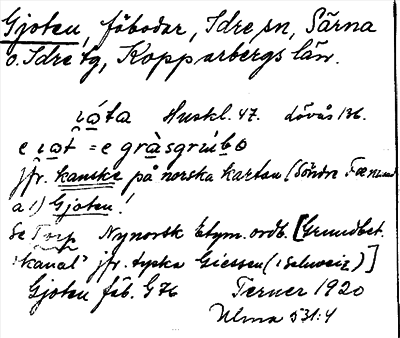 Gjoten, fäbodar, Idre sn, Särna
o. Idre tg, Kopparbergs län.
ı̯òta Huskl. 47. dövås 136.
e ı̯ot = e gràsgrúbo
jfr. kanske på norska kartan (Söndre Fæmund
a 1) Gjoten!
Se Torp Nynorsk Etym. ordb. [Grundbet.
"kanal" jfr. tyska Giessen (i Schweiz)]
Gjoten fäb. G 76 Terner 1920
Ulma 531:4